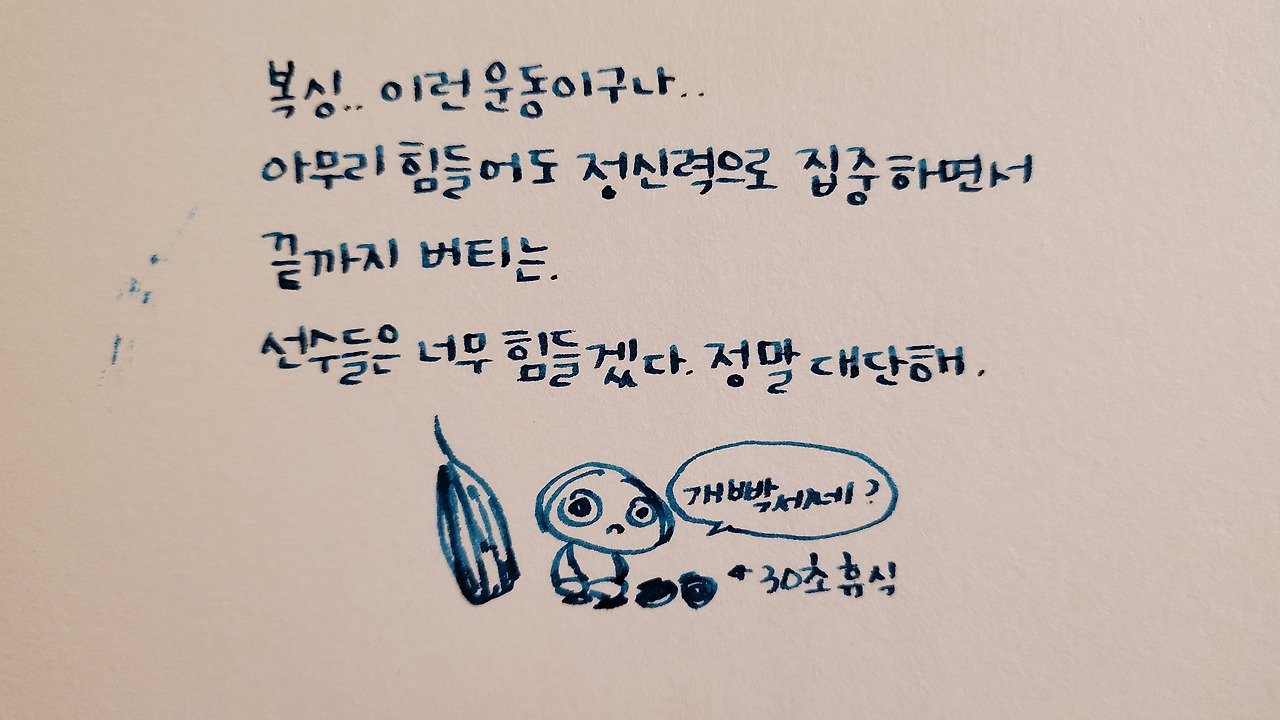 복싱.. 이런 운동이구나..
아무리 힘들어도 정신력으로 집중하면서
끝까지 버티는.
선수들은 너무 힘들겠다. 정말 대단해.
개빡세네?
30초 휴식